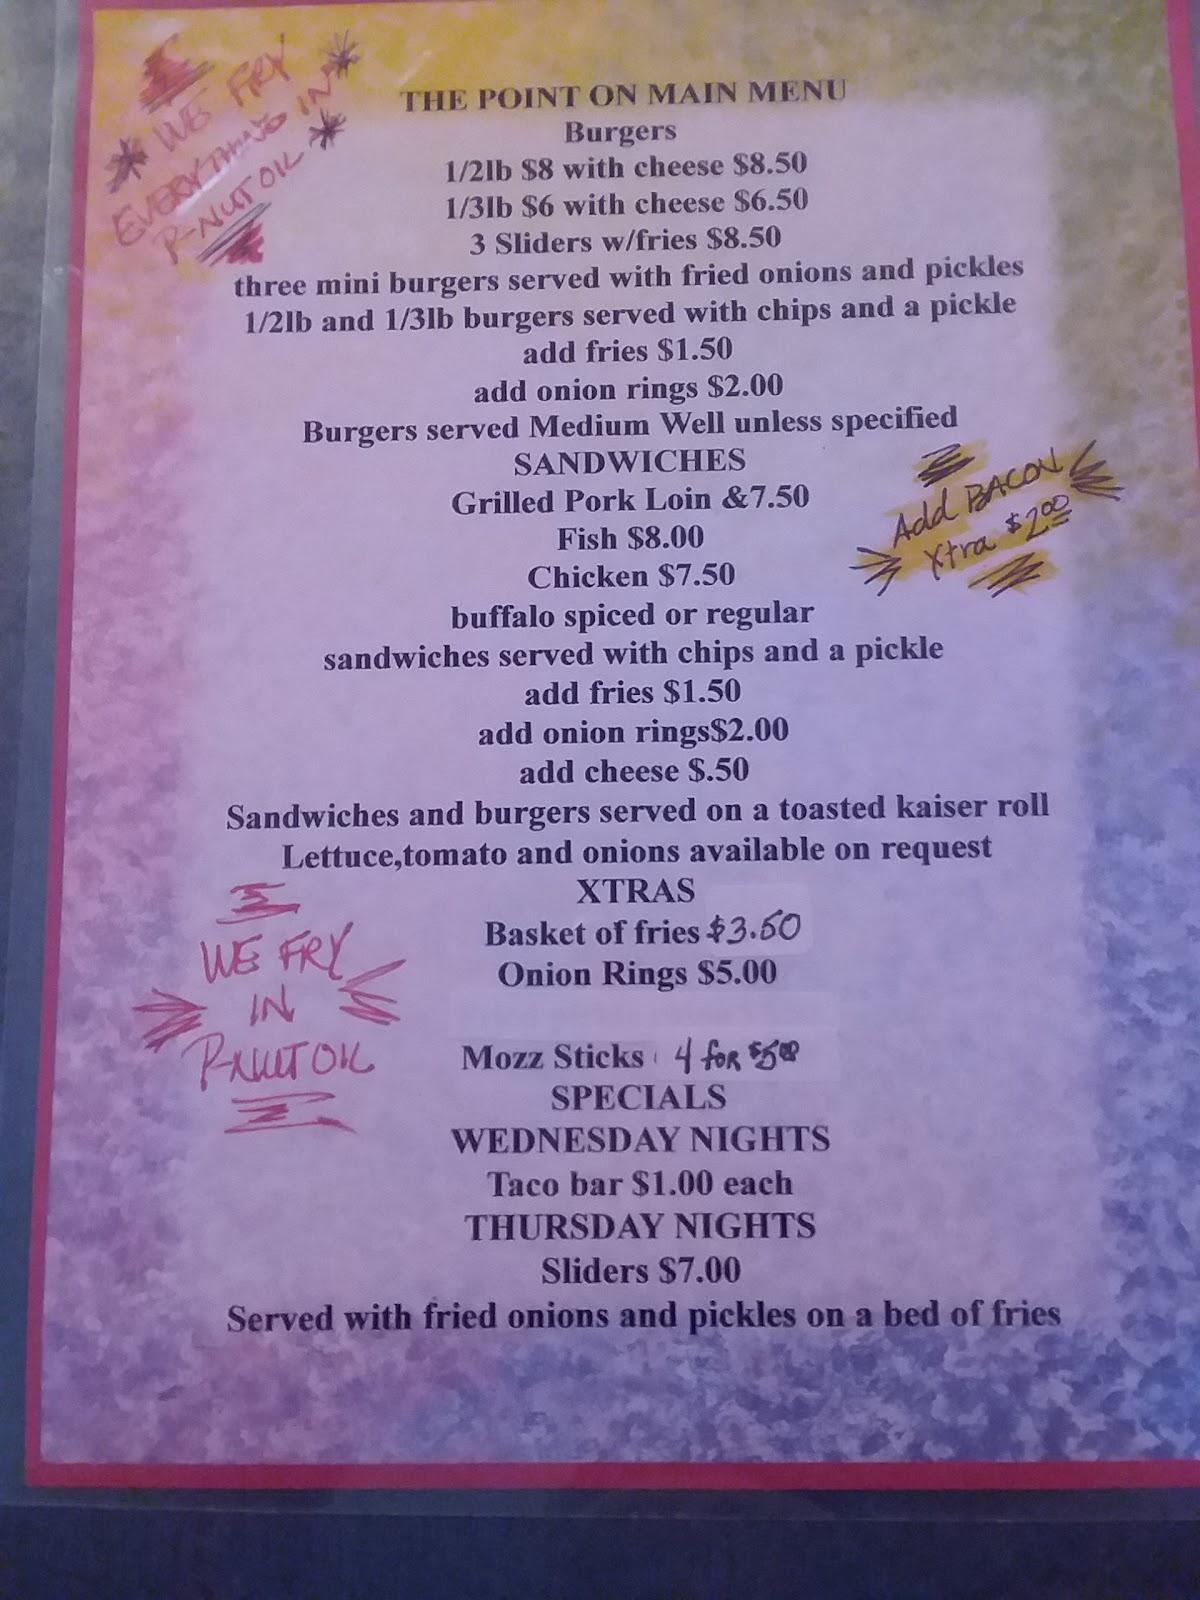 WE FRY
EVERYTHING IN
P-NUT OIL
THE POINT ON MAIN MENU
Burgers
1/2lb $8 with cheese $8.50
1/3lb $6 with cheese $6.50
3 Sliders w/fries $8.50
three mini burgers served with fried onions and pickles
1/2lb and 1/3lb burgers served with chips and a pickle
add fries $1.50
add onion rings $2.00
Burgers served Medium Well unless specified
SANDWICHES
Grilled Pork Loin &7.50
Fish $8.00
Chicken $7.50
Add BACON
Xtra $2.00
buffalo spiced or regular
sandwiches served with chips and a pickle
add fries $1.50
add onion rings$2.00
add cheese $.50
Sandwiches and burgers served on a toasted kaiser roll
Lettuce,tomato and onions available on request
XTRAS
Basket of fries $3.50
Onion Rings $5.00
WE FRY
IN
P-NUT OIL
Mozz Sticks 4 for $5.00
SPECIALS
WEDNESDAY NIGHTS
Taco bar $1.00 each
THURSDAY NIGHTS
Sliders $7.00
Served with fried onions and pickles on a bed of fries